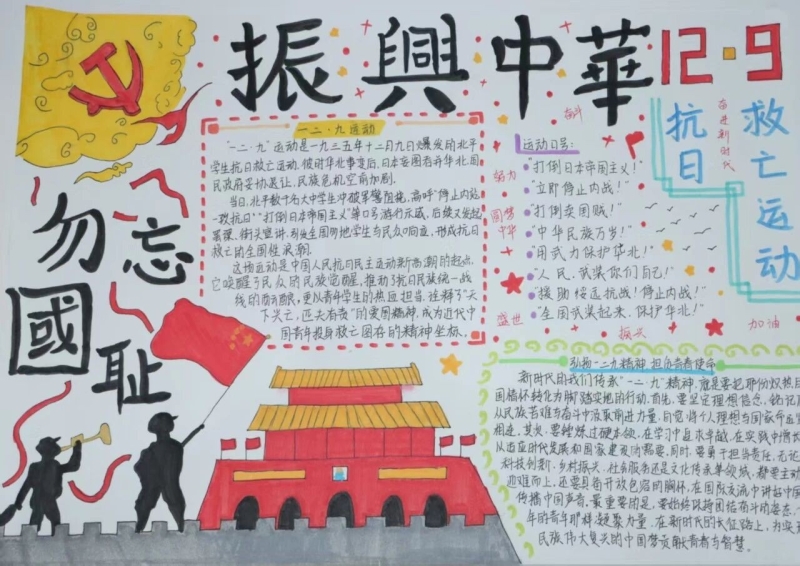 振興中華
12·9
抗日
救亡运动
奋进新时代
勿忘
國耻
一二·九运动
"一二·九"运动是一九三五年十二月九日爆发的北平
学生抗日救亡运动。彼时华北事变后,日本妄图吞并华北,国
民政府妥协退让,民族危机空前加剧。
当日,北平数千名大中学生冲破军警阻挠,高呼"停止内战
一致抗日""打倒日本帝国主义"等口号游行示威,后续又发起
罢课、街头宣讲,引发全国各地学生与民众响应,形成抗日
救亡的全国性浪潮。
这场运动是中国人民抗日民主运动新高潮的起点,
它唤醒了民众的民族觉醒,推动了抗日民族统一战
线的
更以青年学生的热血担当,诠释了"天
下兴亡,匹夫有责"的爱国精神,成为近代中
国青年投身救亡图存的精神坐标。
奋斗
运动口号:
"打倒日本帝国主义!"
"立即停止内战!"
"打倒卖国贼!"
"中华民族万岁!"
"用武力保护华北!"
"人民,武装你们自己!"
"援助绥远抗战!停止内战!"
"全国武装起来,保护华北!"
努力
圆梦
中华
盛世
振兴
加油
弘扬一二九精神 担负青春使命
新时代的我们传承"一二·九"精神,应是要把那份炽热
国情怀转化为脚踏实地的行动。首先,要坚定理想信念,铭记
从民族苦难与奋斗中汲取前进力量,自觉将个人理想与国家命运
相连。其次,要锤炼过硬本领,在学习中追求卓越,在实践中增长
从适应时代发展和国家建设的需要。同时,要勇于担当责任,无论
科技创新、乡村振兴、社会服务还是文化传承等领域,都要主动
迎难而上。还要具备开放包容的胸怀,在国际交流中讲好中国
传播中国声音。最重要的是,要始终以
团结奋斗的姿态,
年的青年那样凝聚力量,在新时代的长征路上,为实
民族伟大复兴的中国梦贡献青春与智慧。